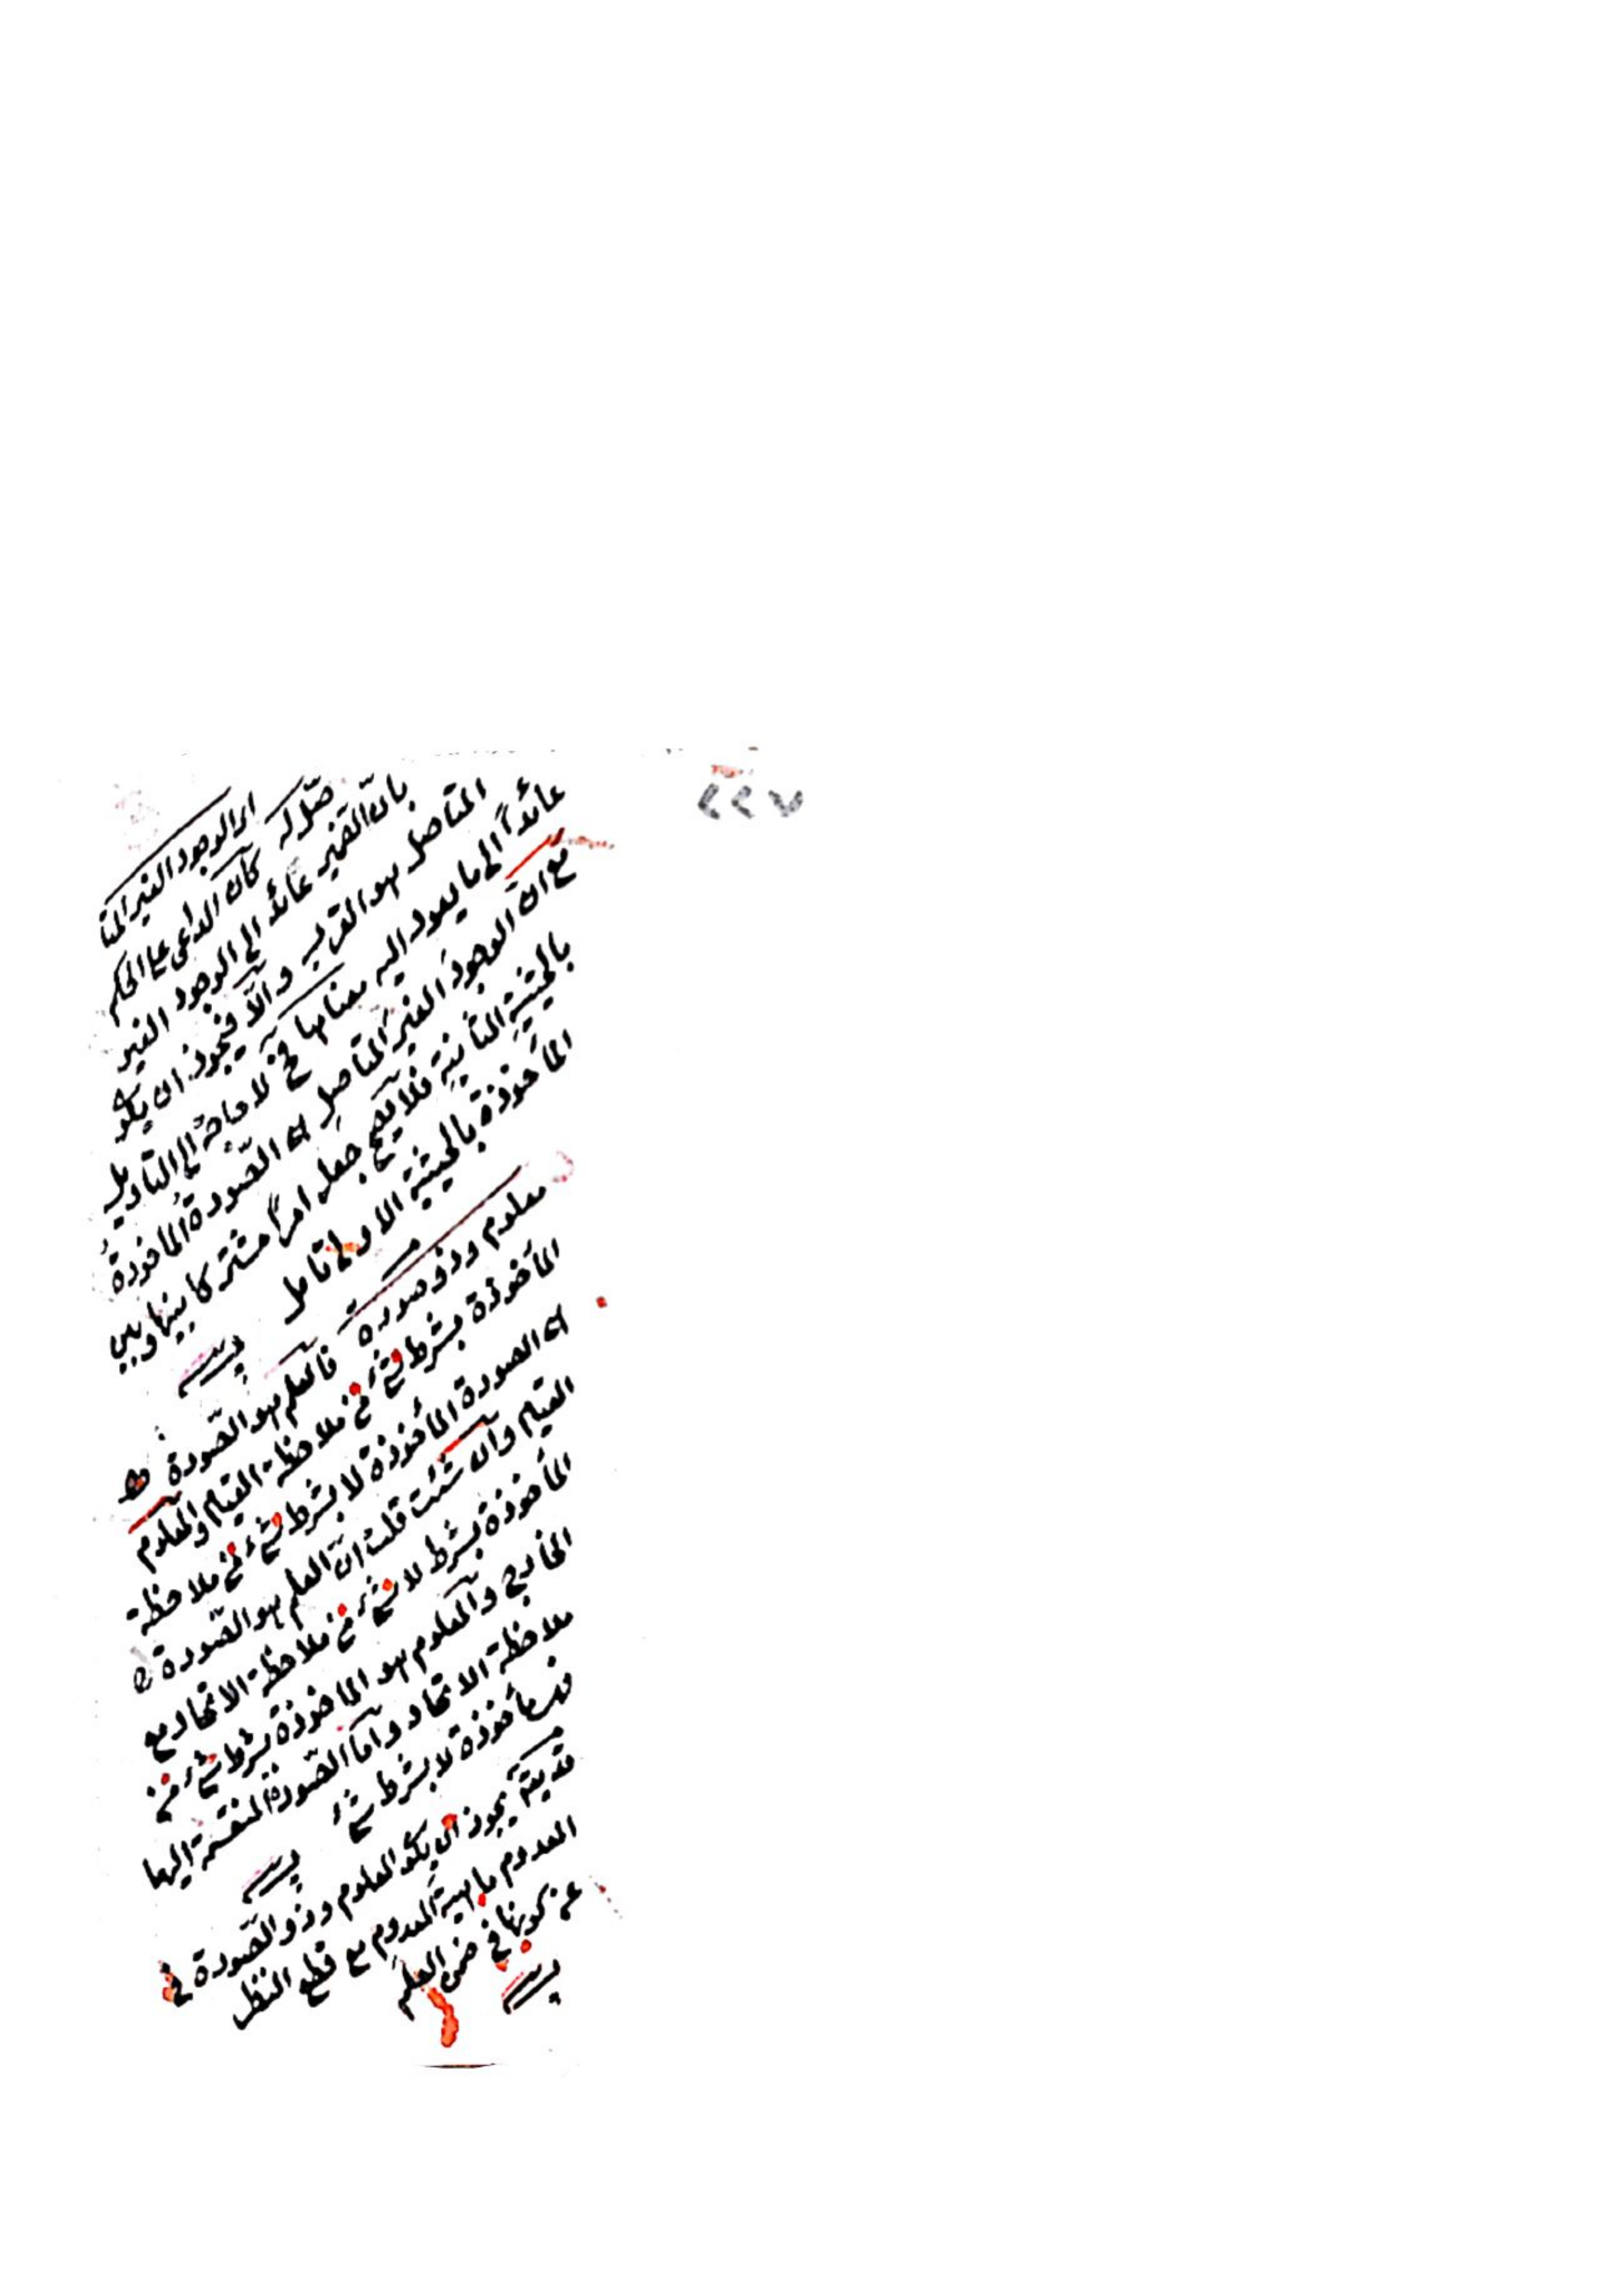 ٢٢٧
اى الوجود الغير المتا
صّل له كأن الداعى على الحكم
بانّ الضمير عائد الى الوجود الغير
المتاصل هو القرب والّا فيجوز ان يكو
عائداً الى ما يعود اليه معناها فح لا حاجة الى التاويل
مع انّ الوجودَ الغيرَ المتاصلِ اى الصّورةُ المأخوذةُ
بالحيثيةِ الثانيةِ فلا يصّح جعله امراً مشتركا بينها وبين
المأخوذة بالحيثيةِ الاولى تامل
معلوم وذو صورة فالعلم هو الصّورة
المأخوذة بشرط شئ فى ملاحظة القيام والمعلوم
اى الصورة المأخوذة لا بشرط شئ فى ملاحظة
القيام وان شئت قلت انّ العلم هو الصّورة
المأخوذة بشرط لا شئ فى ملاحظة الاتحاد مع
الخارج والمعلوم هو المأخوذة بشرط شئ فى
ملاحظة الاتحاد وامّا الصّورة المنقسمة اليهما
فهى مأخوذة لا بشرط شئ
يجوز ان يكو المعلوم وذو الصّورة فى
المعدوم ماهية المعدوم مع قطع النظر
عن كونها فى ضمن العلم